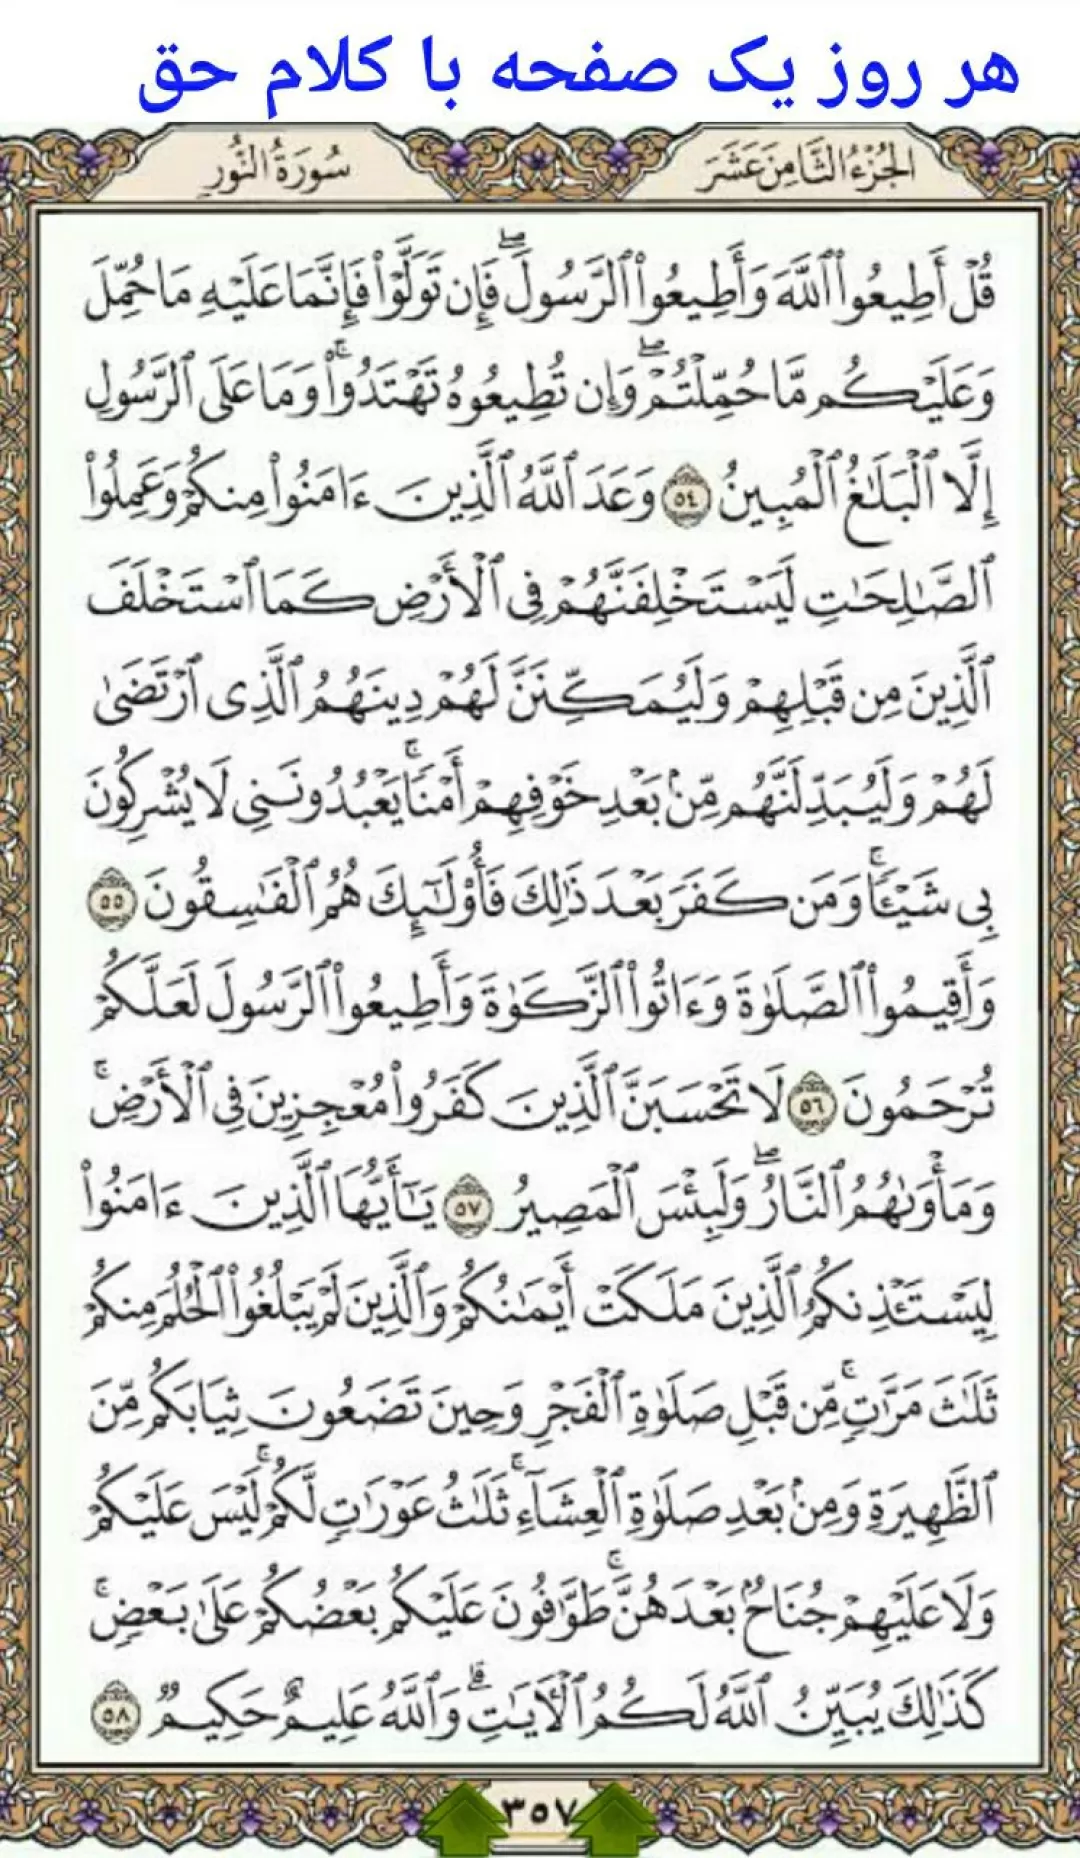 هر روز یک صفحه با کلام حق
الجُزْءُ الثَّامِنَ عَشَرَ
سُورَةُ النُّورِ
قُلْ أَطِيعُوا۟ ٱللَّهَ وَأَطِيعُوا۟ ٱلرَّسُولَۖ فَإِن تَوَلَّوْا۟ فَإِنَّمَا عَلَيْهِ مَا حُمِّلَ
وَعَلَيْكُم مَّا حُمِّلْتُمْۖ وَإِن تُطِيعُوهُ تَهْتَدُوا۟ۚ وَمَا عَلَى ٱلرَّسُولِ
إِلَّا ٱلْبَلَٰغُ ٱلْمُبِينُ ٥٤ وَعَدَ ٱللَّهُ ٱلَّذِينَ ءَامَنُوا۟ مِنكُمْ وَعَمِلُوا۟
ٱلصَّٰلِحَٰتِ لَيَسْتَخْلِفَنَّهُمْ فِى ٱلْأَرْضِ كَمَا ٱسْتَخْلَفَ
ٱلَّذِينَ مِن قَبْلِهِمْ وَلَيُمَكِّنَنَّ لَهُمْ دِينَهُمُ ٱلَّذِى ٱرْتَضَىٰ
لَهُمْ وَلَيُبَدِّلَنَّهُم مِّنۢ بَعْدِ خَوْفِهِمْ أَمْنًاۚ يَعْبُدُونَنِى لَا يُشْرِكُونَ
بِى شَيْـًٔاۚ وَمَن كَفَرَ بَعْدَ ذَٰلِكَ فَأُو۟لَٰٓئِكَ هُمُ ٱلْفَٰسِقُونَ ٥٥
وَأَقِيمُوا۟ ٱلصَّلَوٰةَ وَءَاتُوا۟ ٱلزَّكَوٰةَ وَأَطِيعُوا۟ ٱلرَّسُولَ لَعَلَّكُمْ
تُرْحَمُونَ ٥٦ لَا تَحْسَبَنَّ ٱلَّذِينَ كَفَرُوا۟ مُعْجِزِينَ فِى ٱلْأَرْضِۚ
وَمَأْوَىٰهُمُ ٱلنَّارُۖ وَلَبِئْسَ ٱلْمَصِيرُ ٥٧ يَٰٓأَيُّهَا ٱلَّذِينَ ءَامَنُوا۟
لِيَسْتَـْٔذِنكُمُ ٱلَّذِينَ مَلَكَتْ أَيْمَٰنُكُمْ وَٱلَّذِينَ لَمْ يَبْلُغُوا۟ ٱلْحُلُمَ مِنكُمْ
ثَلَٰثَ مَرَّٰتٍۚ مِّن قَبْلِ صَلَوٰةِ ٱلْفَجْرِ وَحِينَ تَضَعُونَ ثِيَابَكُم مِّنَ
ٱلظَّهِيرَةِ وَمِنۢ بَعْدِ صَلَوٰةِ ٱلْعِشَآءِۚ ثَلَٰثُ عَوْرَٰتٍ لَّكُمْۚ لَيْسَ عَلَيْكُمْ
وَلَا عَلَيْهِمْ جُنَاحٌۢ بَعْدَهُنَّۚ طَوَّٰفُونَ عَلَيْكُم بَعْضُكُمْ عَلَىٰ بَعْضٍۚ
كَذَٰلِكَ يُبَيِّنُ ٱللَّهُ لَكُمُ ٱلْءَايَٰتِۗ وَٱللَّهُ عَلِيمٌ حَكِيمٌ ٥٨
٣٥٧